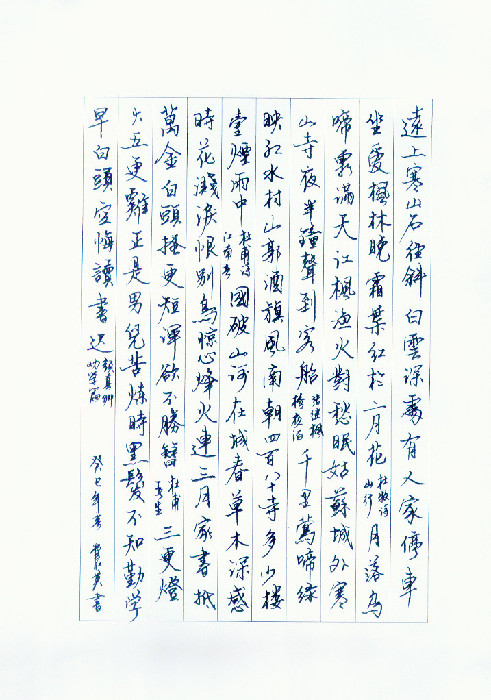 遠上寒山石徑斜白雲深處有人家停車
坐愛楓林晚霜葉红於二月花杜牧诗山行月落烏
啼霜滿天江楓渔火對愁眠姑蘇城外寒
山寺夜半鐘聲到客船千里鶯啼绿
映红水村山郭酒旗風南朝四百八十寺多少楼
臺煙雨中杜甫诗江南春國破山河在城春草木深感
時花濺淚恨别鳥惊心烽火連三月家書抵
萬金白頭搔更短渾欲不勝簪杜甫三更燈
火五更雞正是男兒苦炼時黑髮不知勤学
早白頭方悔讀書迟顏真卿癸巳年書